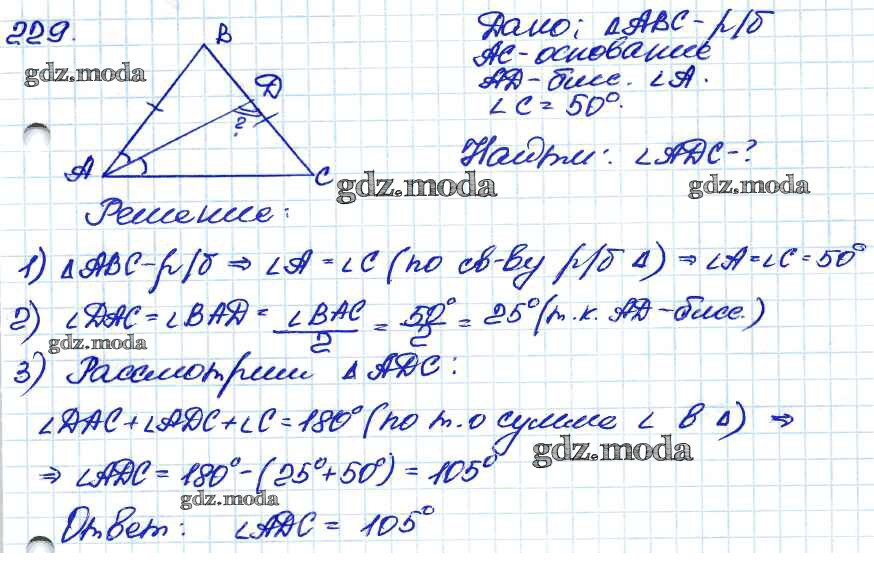 229.
gdz.moda
B
D
?
A
C
Дано: ∆ABC - р/б
AC - основание
AD - бисс. ∠A.
∠C = 50°.
Найти: ∠ADC - ?
gdz.moda
gdz.moda
Решение:
1) ∆ABC - р/б ⇒ ∠A = ∠C (по св-ву р/б ∆) ⇒ ∠A = ∠C = 50°
2) ∠DAC = ∠BAD = ∠BAC/2 = 50°/2 = 25° (т.к. AD - бисс.)
gdz.moda
3) Рассмотрим ∆ADC:
∠DAC + ∠ADC + ∠C = 180° (по т. о сумме ∠ в ∆) ⇒
gdz.moda
⇒ ∠ADC = 180° - (25° + 50°) = 105°
gdz.moda
Ответ: ∠ADC = 105°